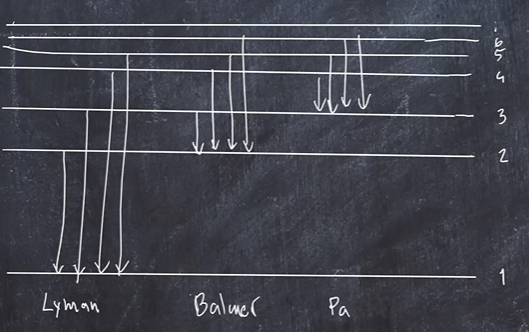 6
5
4
3
2
1
Lyman Balmer Pa